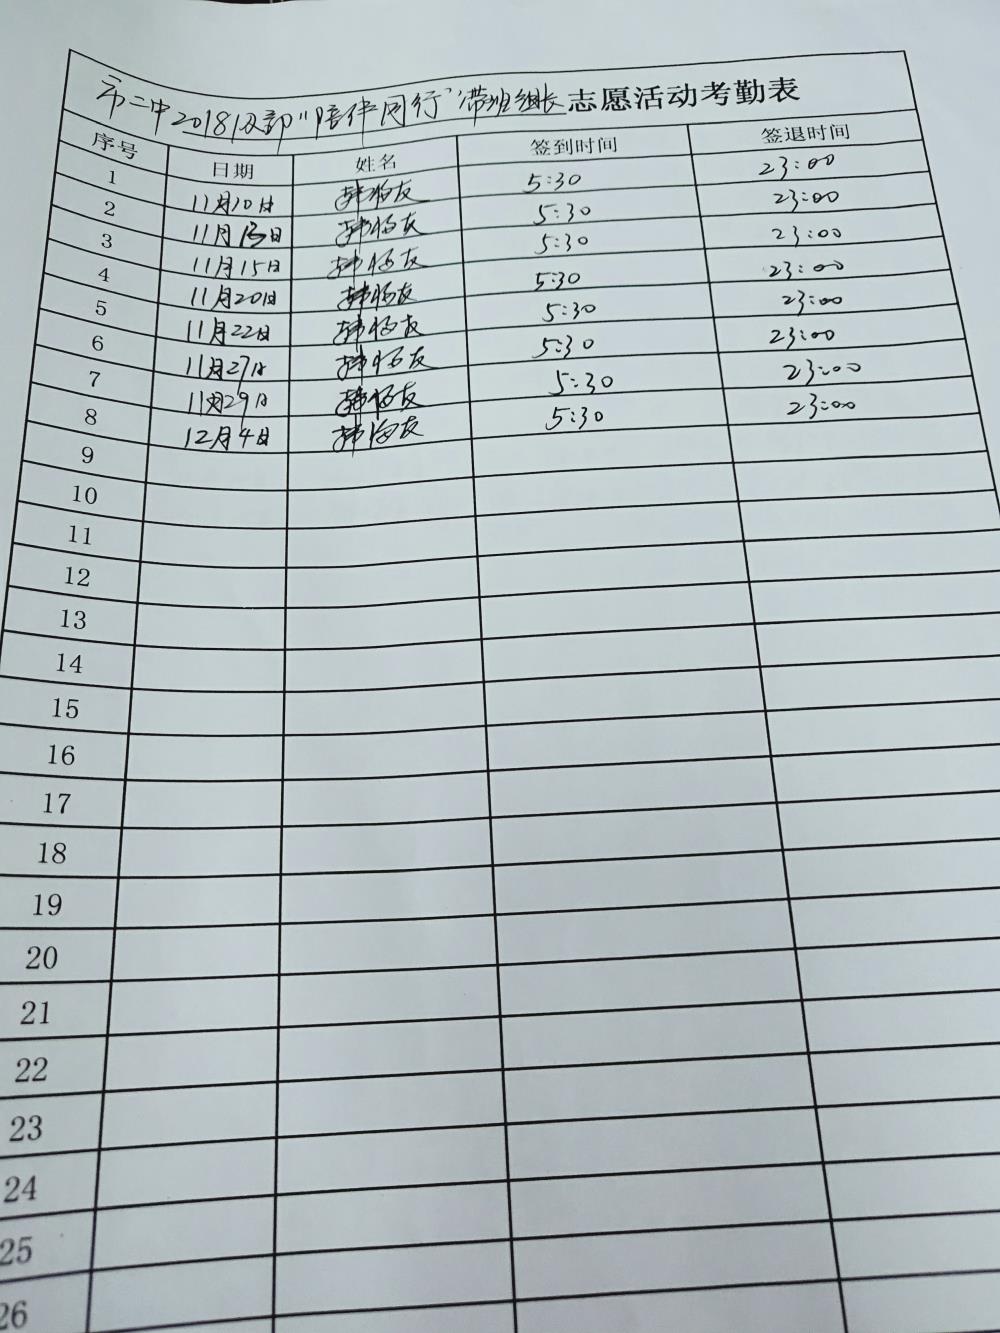 市二中2018级部"陪伴同行"带班组长志愿活动考勤表
序号 日期 姓名 签到时间 签退时间
1 11月10日 5:30 23:00
2 11月13日 5:30 23:00
3 11月15日 5:30 23:00
4 11月20日 5:30 23:00
5 11月22日 5:30 23:00
6 11月27日 5:30 23:00
7 11月29日 5:30 23:00
8 12月4日 5:30 23:00
9
10
11
12
13
14
15
16
17
18
19
20
21
22
23
24
25
26